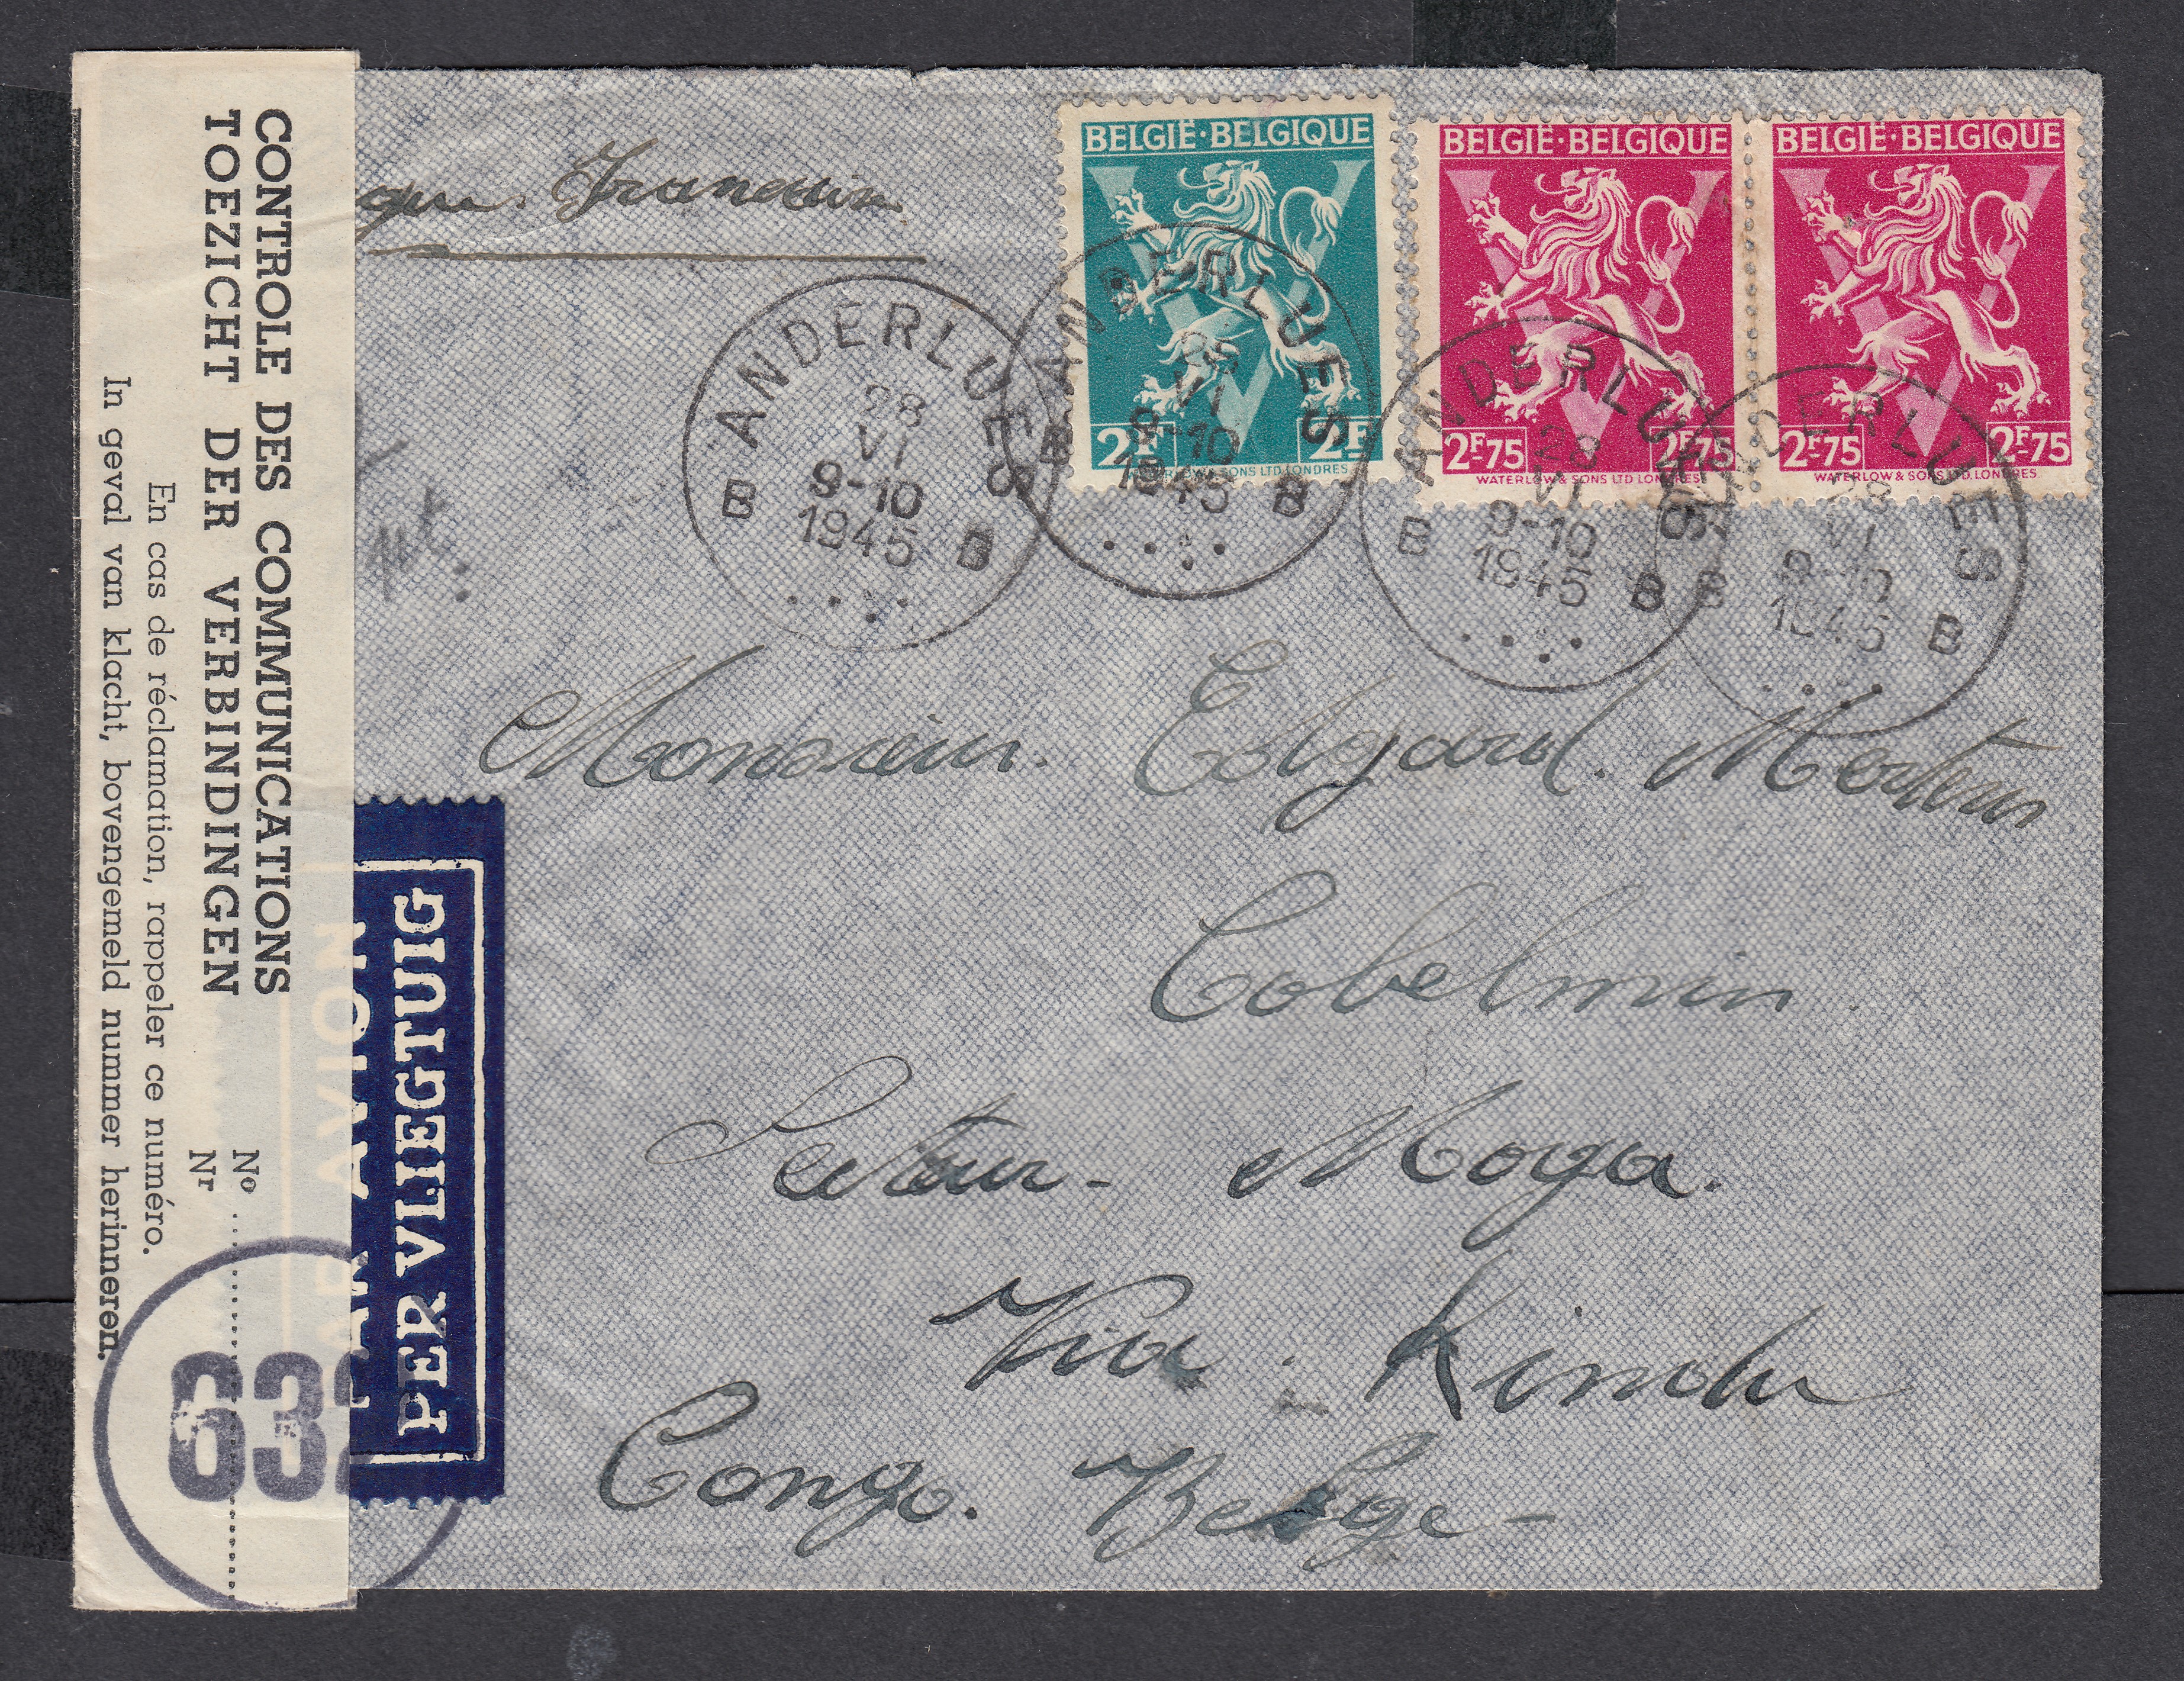 CONTROLE DES COMMUNICATIONS
TOEZICHT DER VERBINDINGEN
No
Nr
En cas de réclamation, rappeler ce numéro.
In geval van klacht, bovengemeld nummer herinneren.
632
PAR AVION
PER VLIEGTUIG
BELGIË·BELGIQUE
2F 2F
WATERLOW & SONS LTD LONDRES
BELGIË·BELGIQUE
2F75 2F75
WATERLOW & SONS LTD LONDRES
BELGIË·BELGIQUE
2F75 2F75
WATERLOW & SONS LTD. LONDRES
ANDERLUES
28
VI
9-10
1945
B B
ANDERLUES
VI
9-10
1945
B B
ANDERLUES
28
VI
9-10
1945
B B
ANDERLUES
28
VI
9-10
1945
B B
Monsieur. Edgard. Mertens
Cobelmin
Secteur- Moga.
Via. Kindu
Congo. Belge-